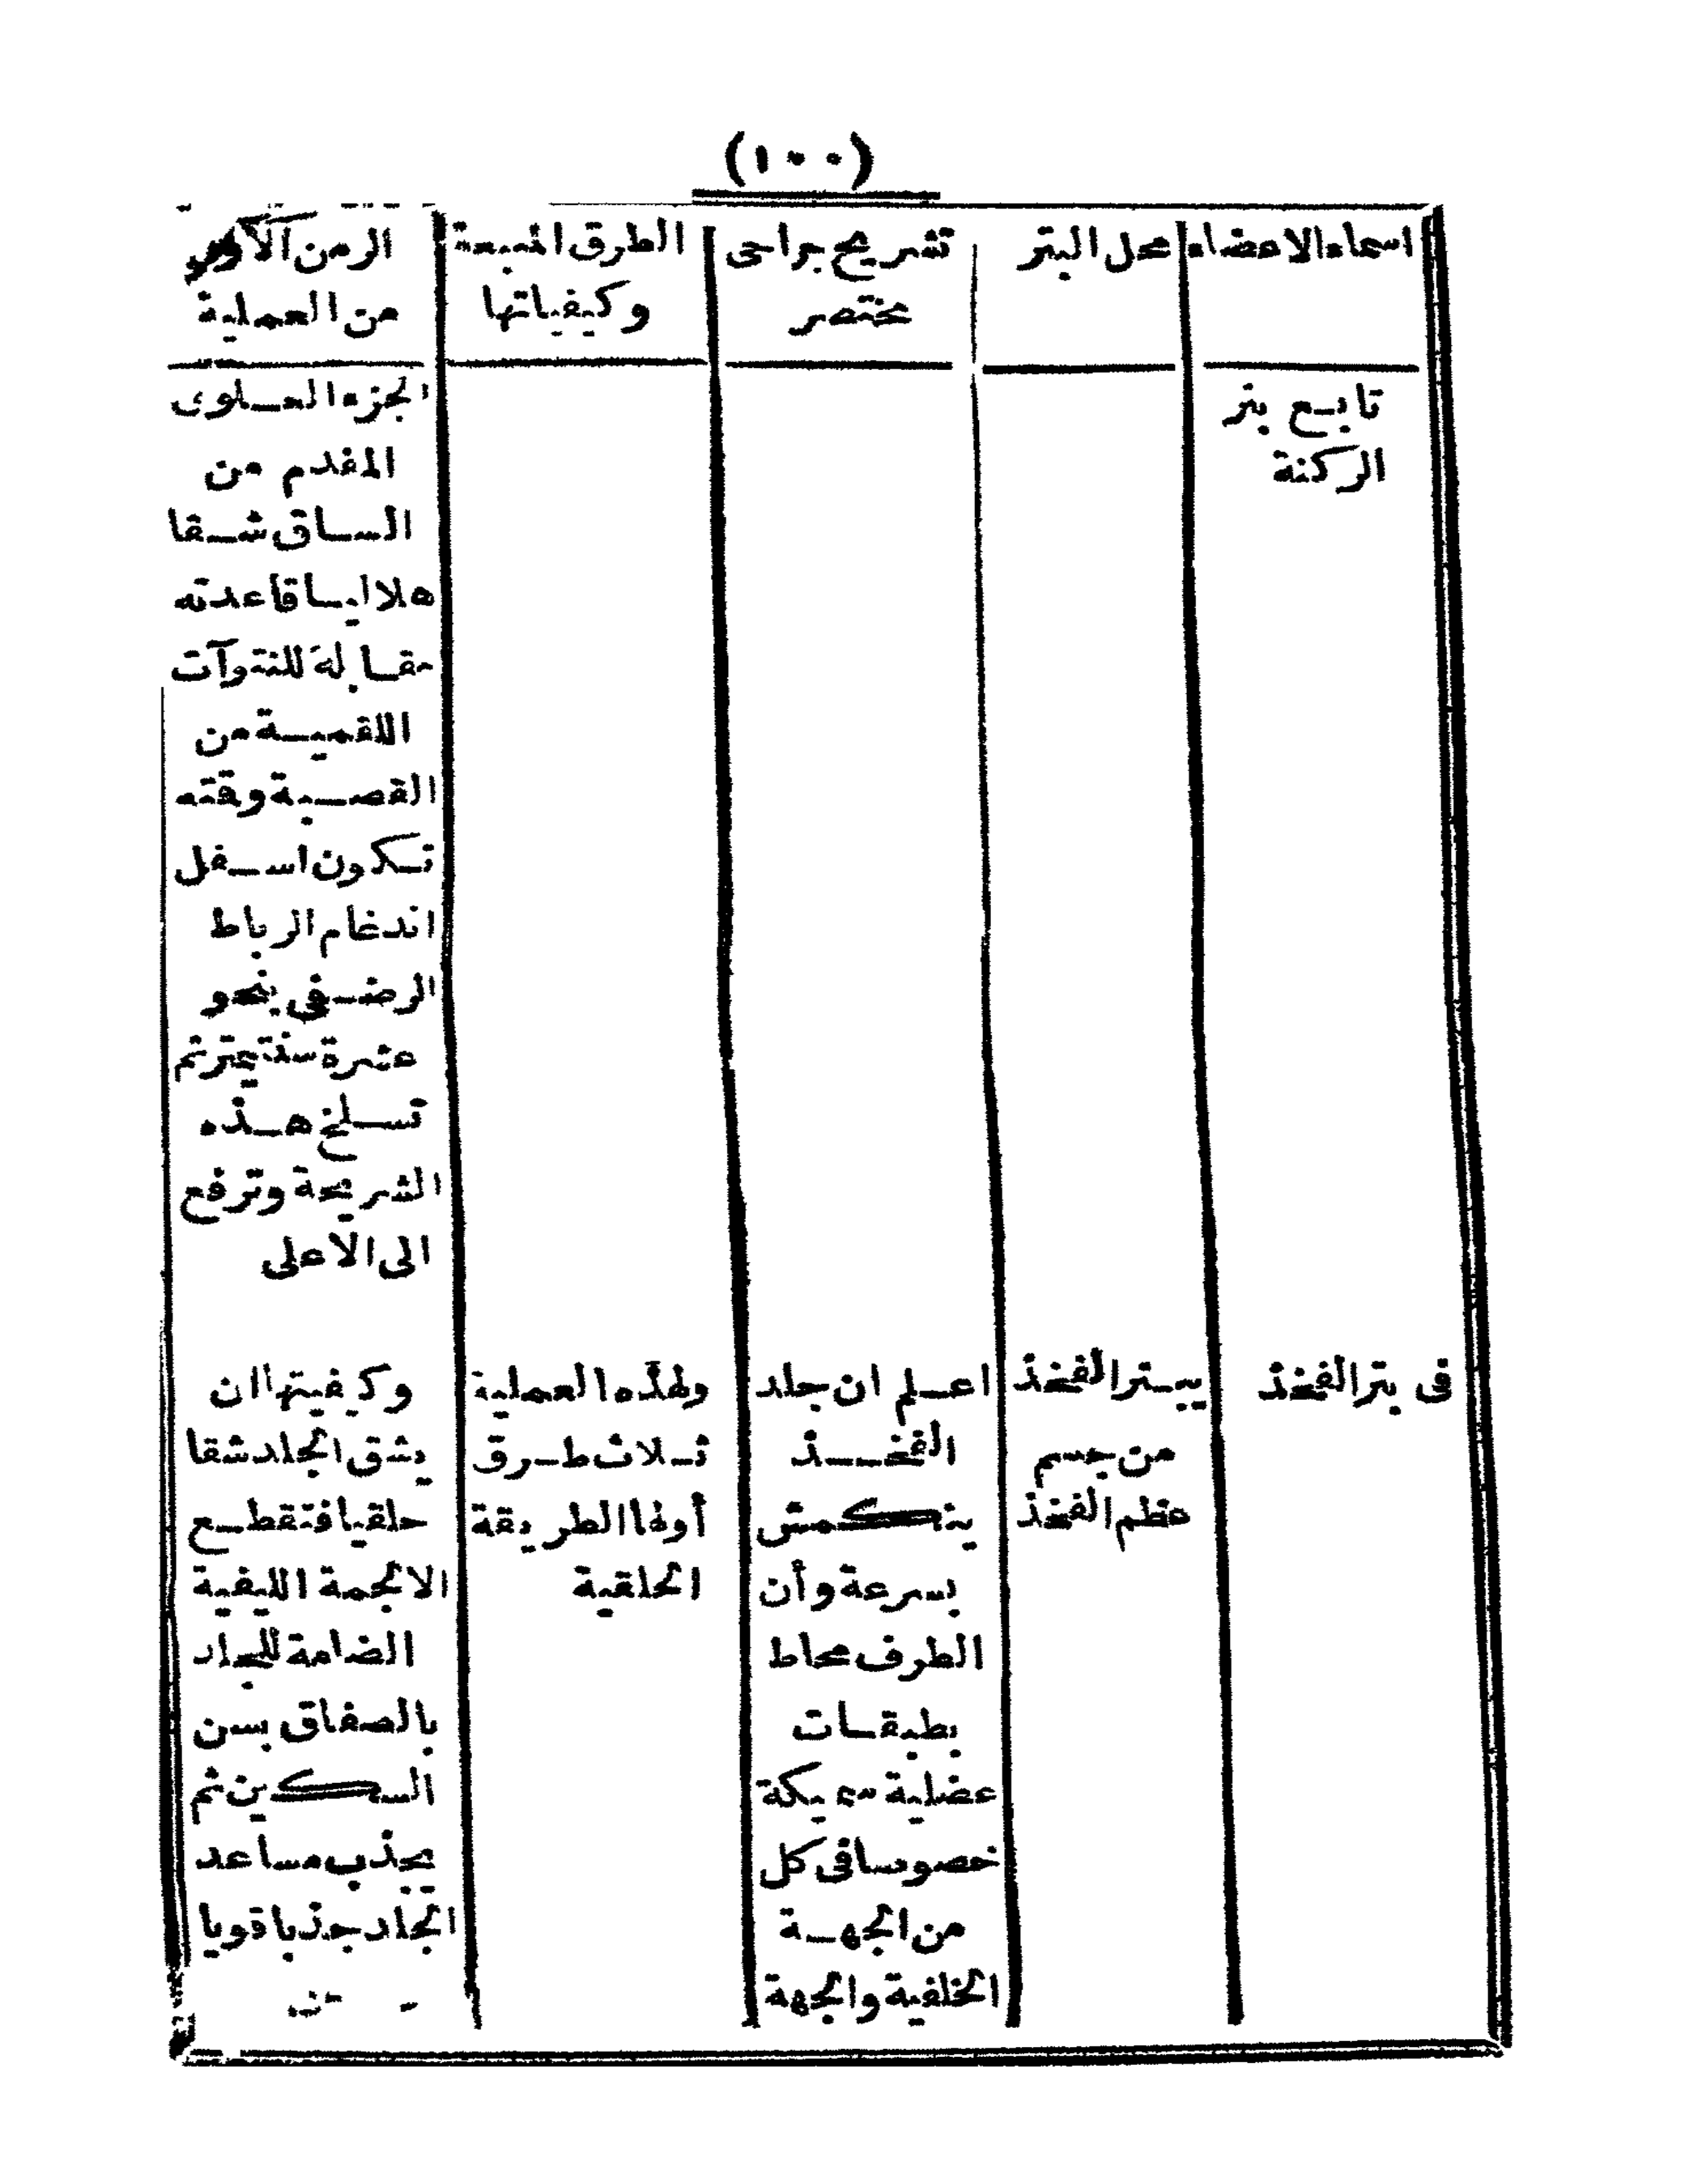 (١٠٠)
اسماء الاعضاء
محل البتر
تشريح جراحى
مختصر
الطرق المتبعة
وكيفياتها
الزمن الاول
من العملية
تابع بتر
الركبة
الجزء العلوى
المقدم من
الساق شقا
هلاليا قاعدته
مقابلة للنتوآت
اللقمية من
القصبة وقته
تكون اسفل
اندغام الرباط
الرضفى بنحو
عشرة سنتيمتر ثم
تسلخ هذه
الشريحة وترفع
الى الاعلى
فى بتر الفخذ
يبتر الفخذ
من جسم
عظم الفخذ
اعلم ان جلد
الفخذ
ينكمش
بسرعة وأن
الطرف محاط
بطبقات
عضلية سميكة
خصوصا فى كل
من الجهة
الخلفية والجهة
ولهذه العملية
ثلاث طرق
أولها الطريقة
الحلقية
وكيفيتها ان
يشق الجلد شقا
حلقيا فتقطع
الالجمة الليفية
الضامة للجلد
بالصفاق بسن
السكين ثم
يجذب مساعد
الجلد جذبا قويا